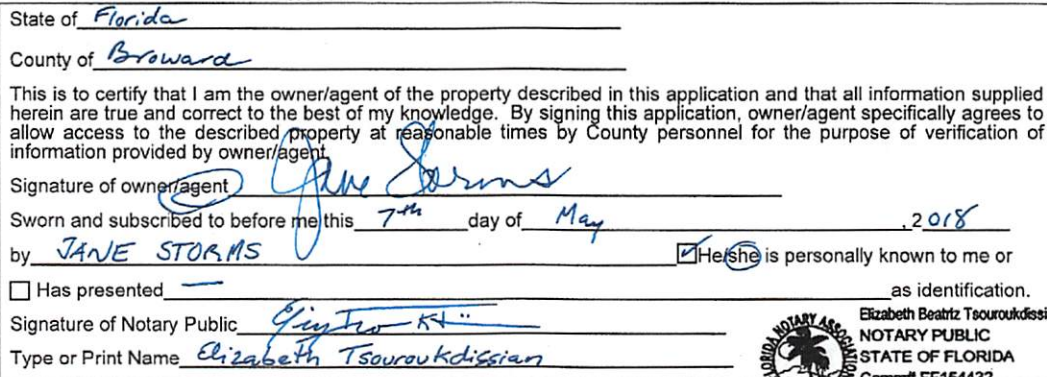 State of Florida
County of Broward
This is to certify that I am the owner/agent of the property described in this application and that all information supplied
herein are true and correct to the best of my knowledge. By signing this application, owner/agent specifically agrees to
allow access to the described property at reasonable times by County personnel for the purpose of verification of
information provided by owner/agent.
Signature of owner/agent Jane Storms
Sworn and subscribed to before me this 7th day of May, 2018
by JANE STORMS ☑He/she is personally known to me or
☐ Has presented — as identification.
Signature of Notary Public
Type or Print Name Elizabeth Tsouroukdissian
Elizabeth Beatriz Tsouroukdissi
NOTARY PUBLIC
STATE OF FLORIDA
Comm# FF154422